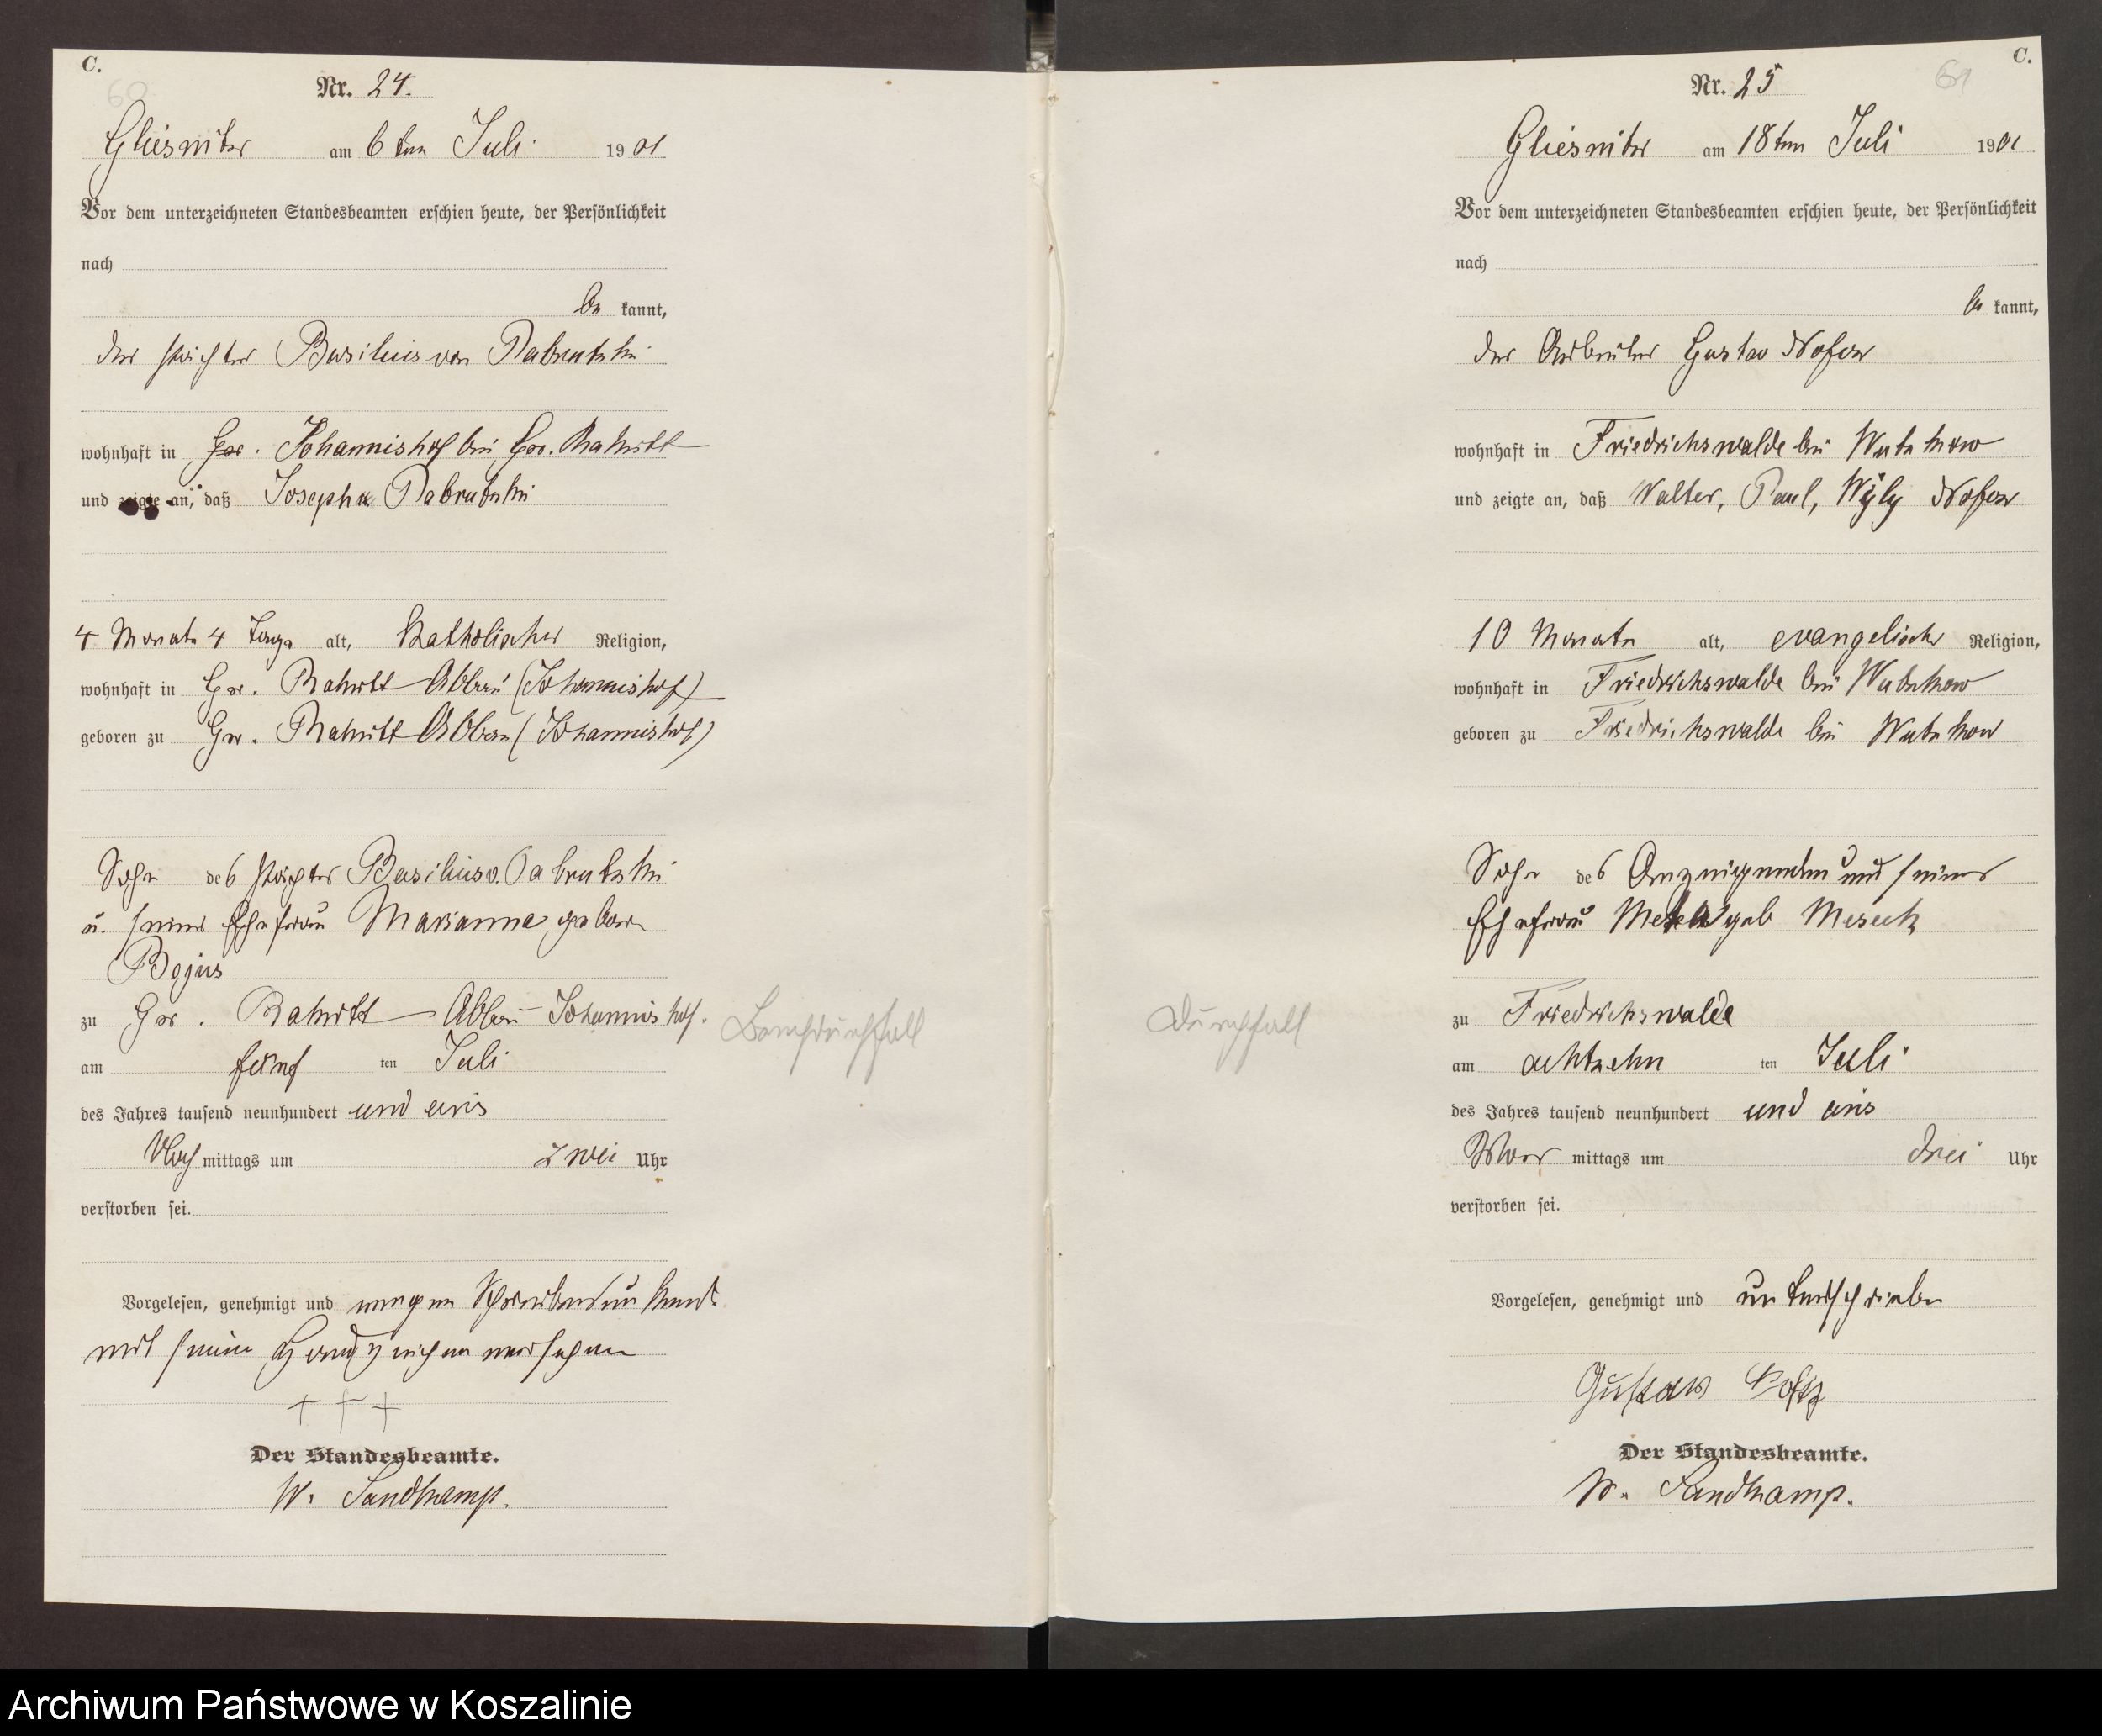 C.
60
Nr. 24.
Gliesnitz am 6ten Juli 1901
Vor dem unterzeichneten Standesbeamten erschien heute, der Persönlichkeit
nach
be kannt,
der Pächter Basilius von Dabrutzki
wohnhaft in Gr. Johannishof bei Gr. Rakitt
und zeigte an, daß Josepha Dabrutzki
4 Monate 4 Tage alt, katholischer Religion,
wohnhaft in Gr. Rakitt Abbau (Johannishof)
geboren zu Gr. Rakitt Abbau (Johannishof)
Sohn des Pächters Basilius v. Dabrutzki
u. seiner Ehefrau Marianne, geboren
zu Gr. Rakitt Abbau Johannishof.
am fünf ten Juli
des Jahres tausend neunhundert und eins
Nach mittags um zwei Uhr
verstorben sei.
Vorgelesen, genehmigt und wegen Schreibensunkunde
mit seinen Handzeichen versehen
+ + +
Der Standesbeamte.
W. Sandkamp.
Brechdurchfall
C.
61
Nr. 25
Gliesnitz am 18ten Juli 1901
Vor dem unterzeichneten Standesbeamten erschien heute, der Persönlichkeit
nach
be kannt,
der Arbeiter Gustav
wohnhaft in Friedrichswalde bei Wutzkow
und zeigte an, daß Walter, Paul, Wyly
10 Monate alt, evangelischer Religion,
wohnhaft in Friedrichswalde bei Wutzkow
geboren zu Friedrichswalde bei Wutzkow
Sohn des Anzeigenden und seiner
Ehefrau geb
zu Friedrichswalde
am achtzehn ten Juli
des Jahres tausend neunhundert und eins
Vor mittags um drei Uhr
verstorben sei.
Vorgelesen, genehmigt und unterschrieben
Gustav
Der Standesbeamte.
W. Sandkamp.
Durchfall
Archiwum Państwowe w Koszalinie